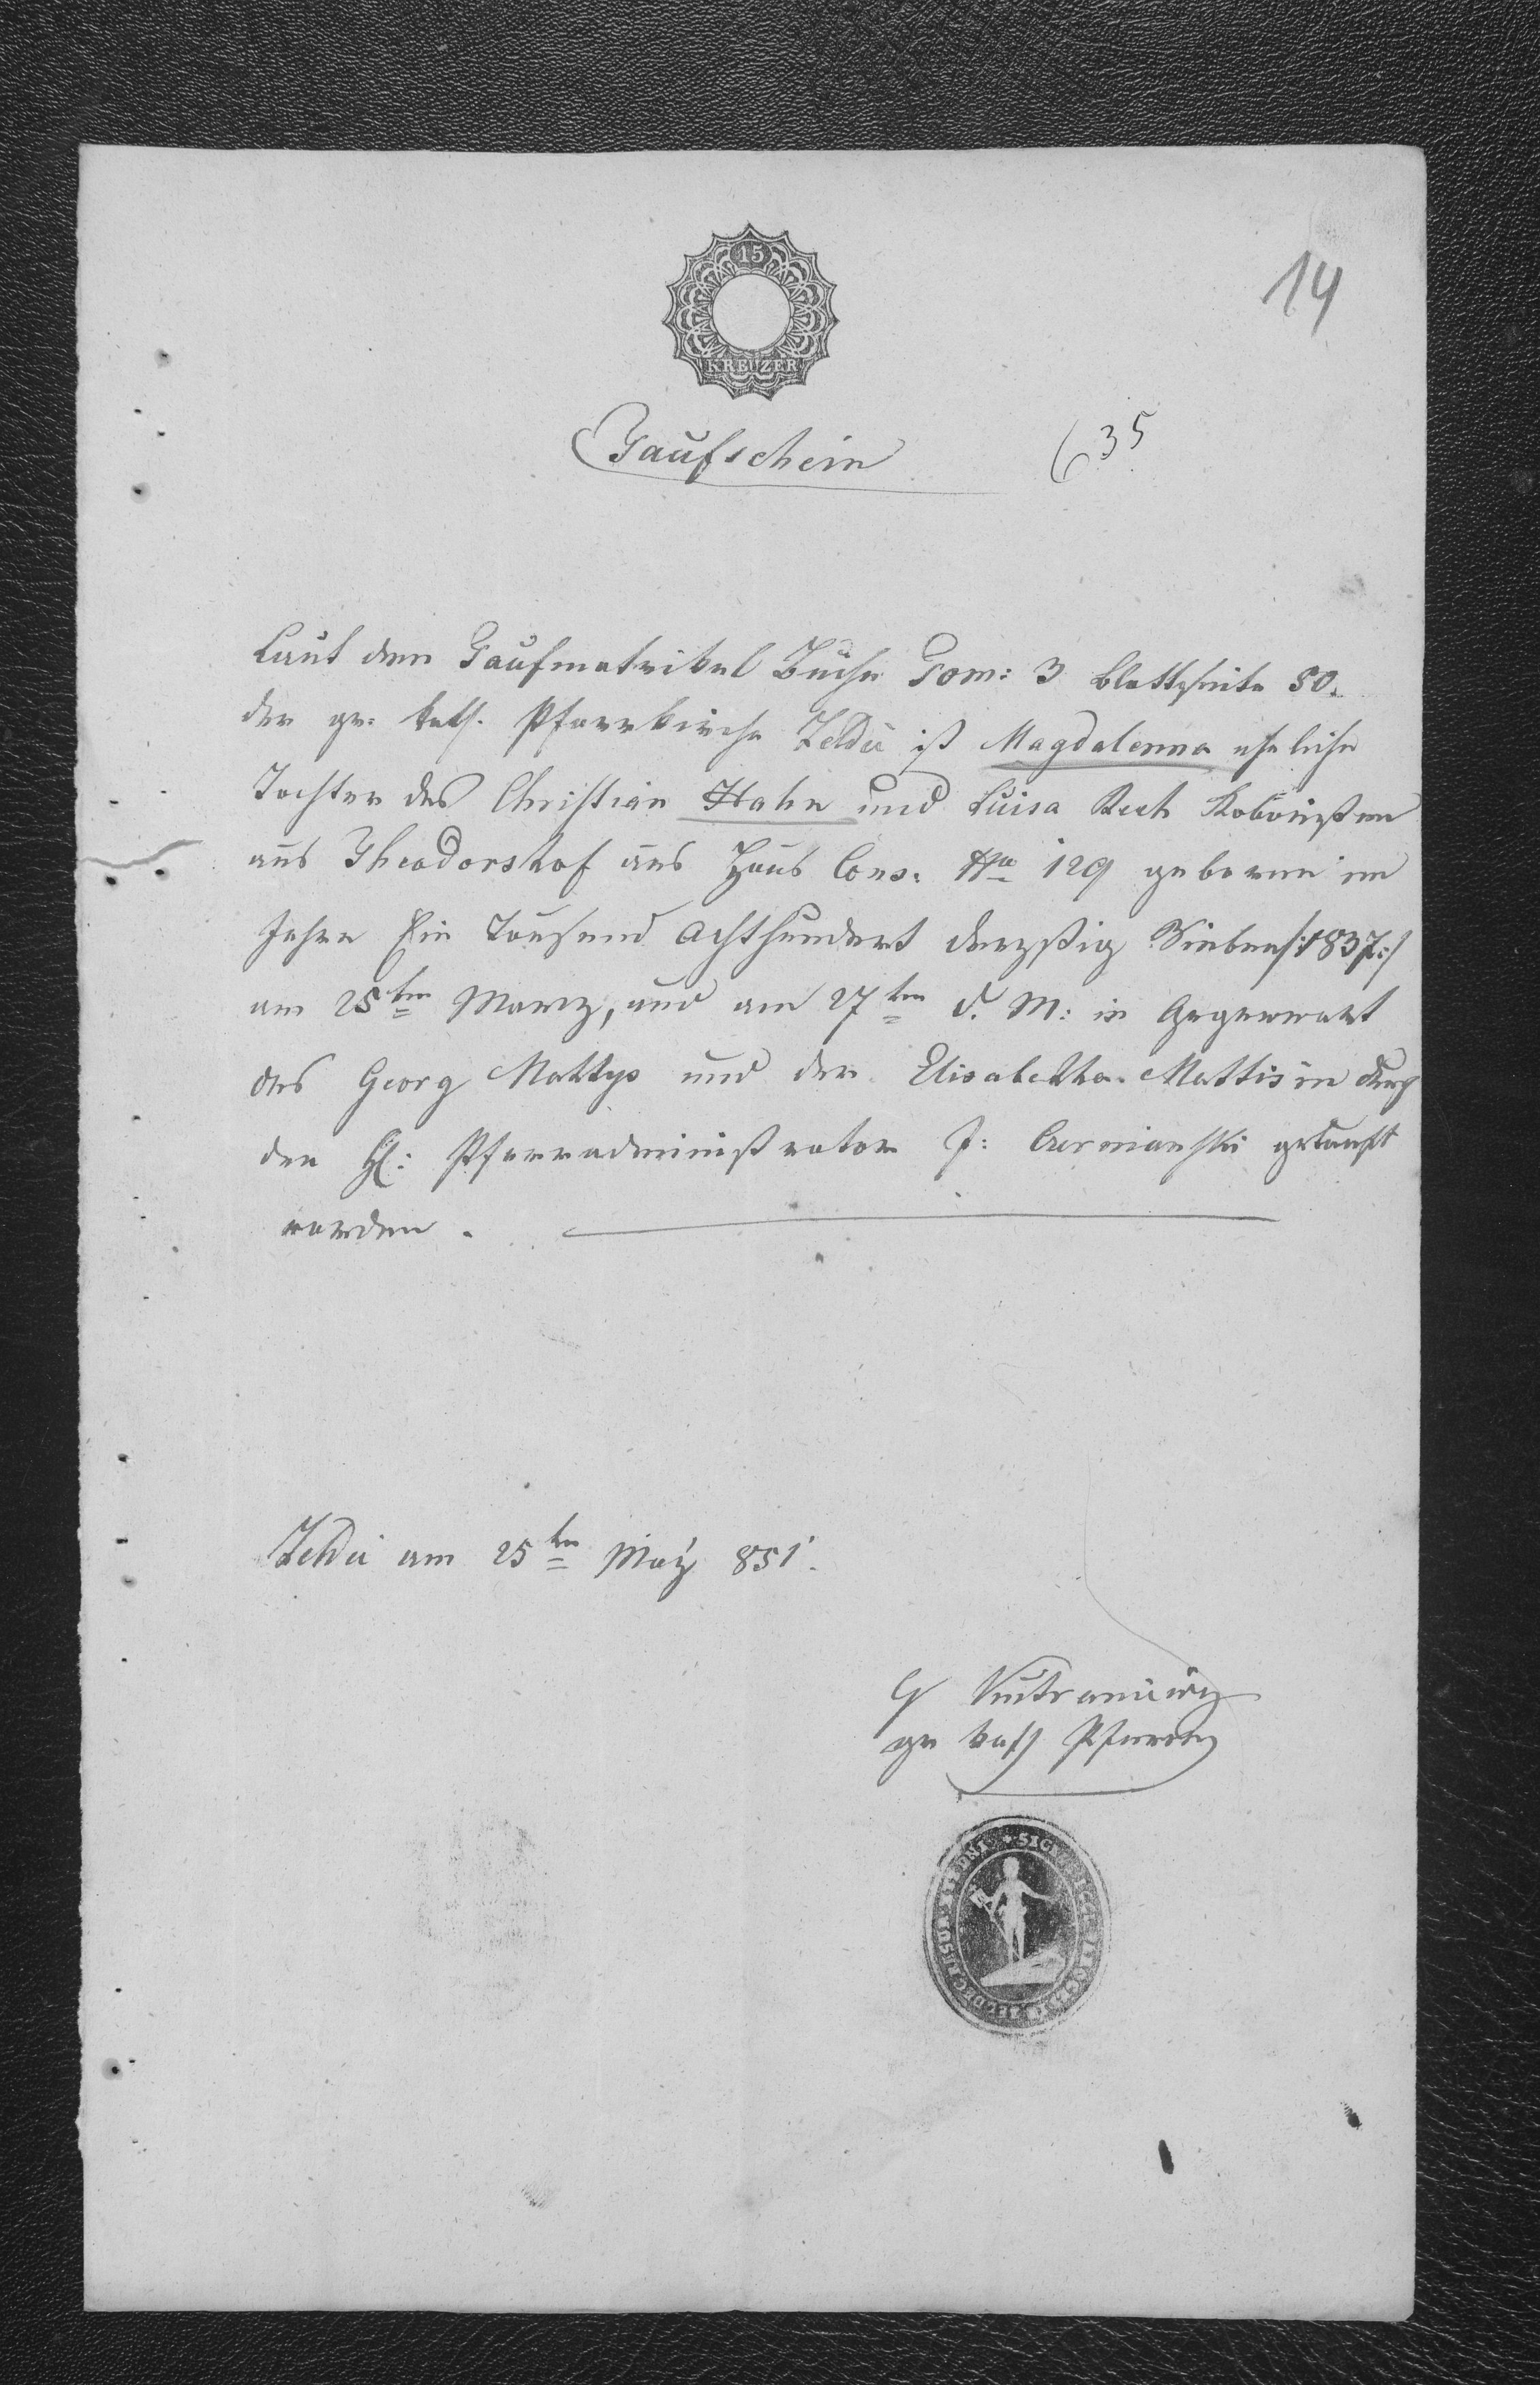 15
KREUZER
14
Taufschein
635
Laut dem Taufmatrikel Buche Tom: 3 Blattseite 50.
der gr. kath. Pfarrkirche Zeldü ist Magdalenna eheliche
Tochter des Christian Hahn und Luisa Rech Kolonisten
aus Theodorshof aus Haus Cons. Nro 129 geboren im
Jahre Ein Tausend Achthundert dreyßig Sieben /:1837:/
am 25ten Marz, und am 27ten d. M: in Gegenwart
des Georg Mattys und der Elisabetha Mattisin durch
den H: Pfarradministrator J: getauft
worden.
Zeldü am 25ten May 851.
G
gr kath Pfarrer